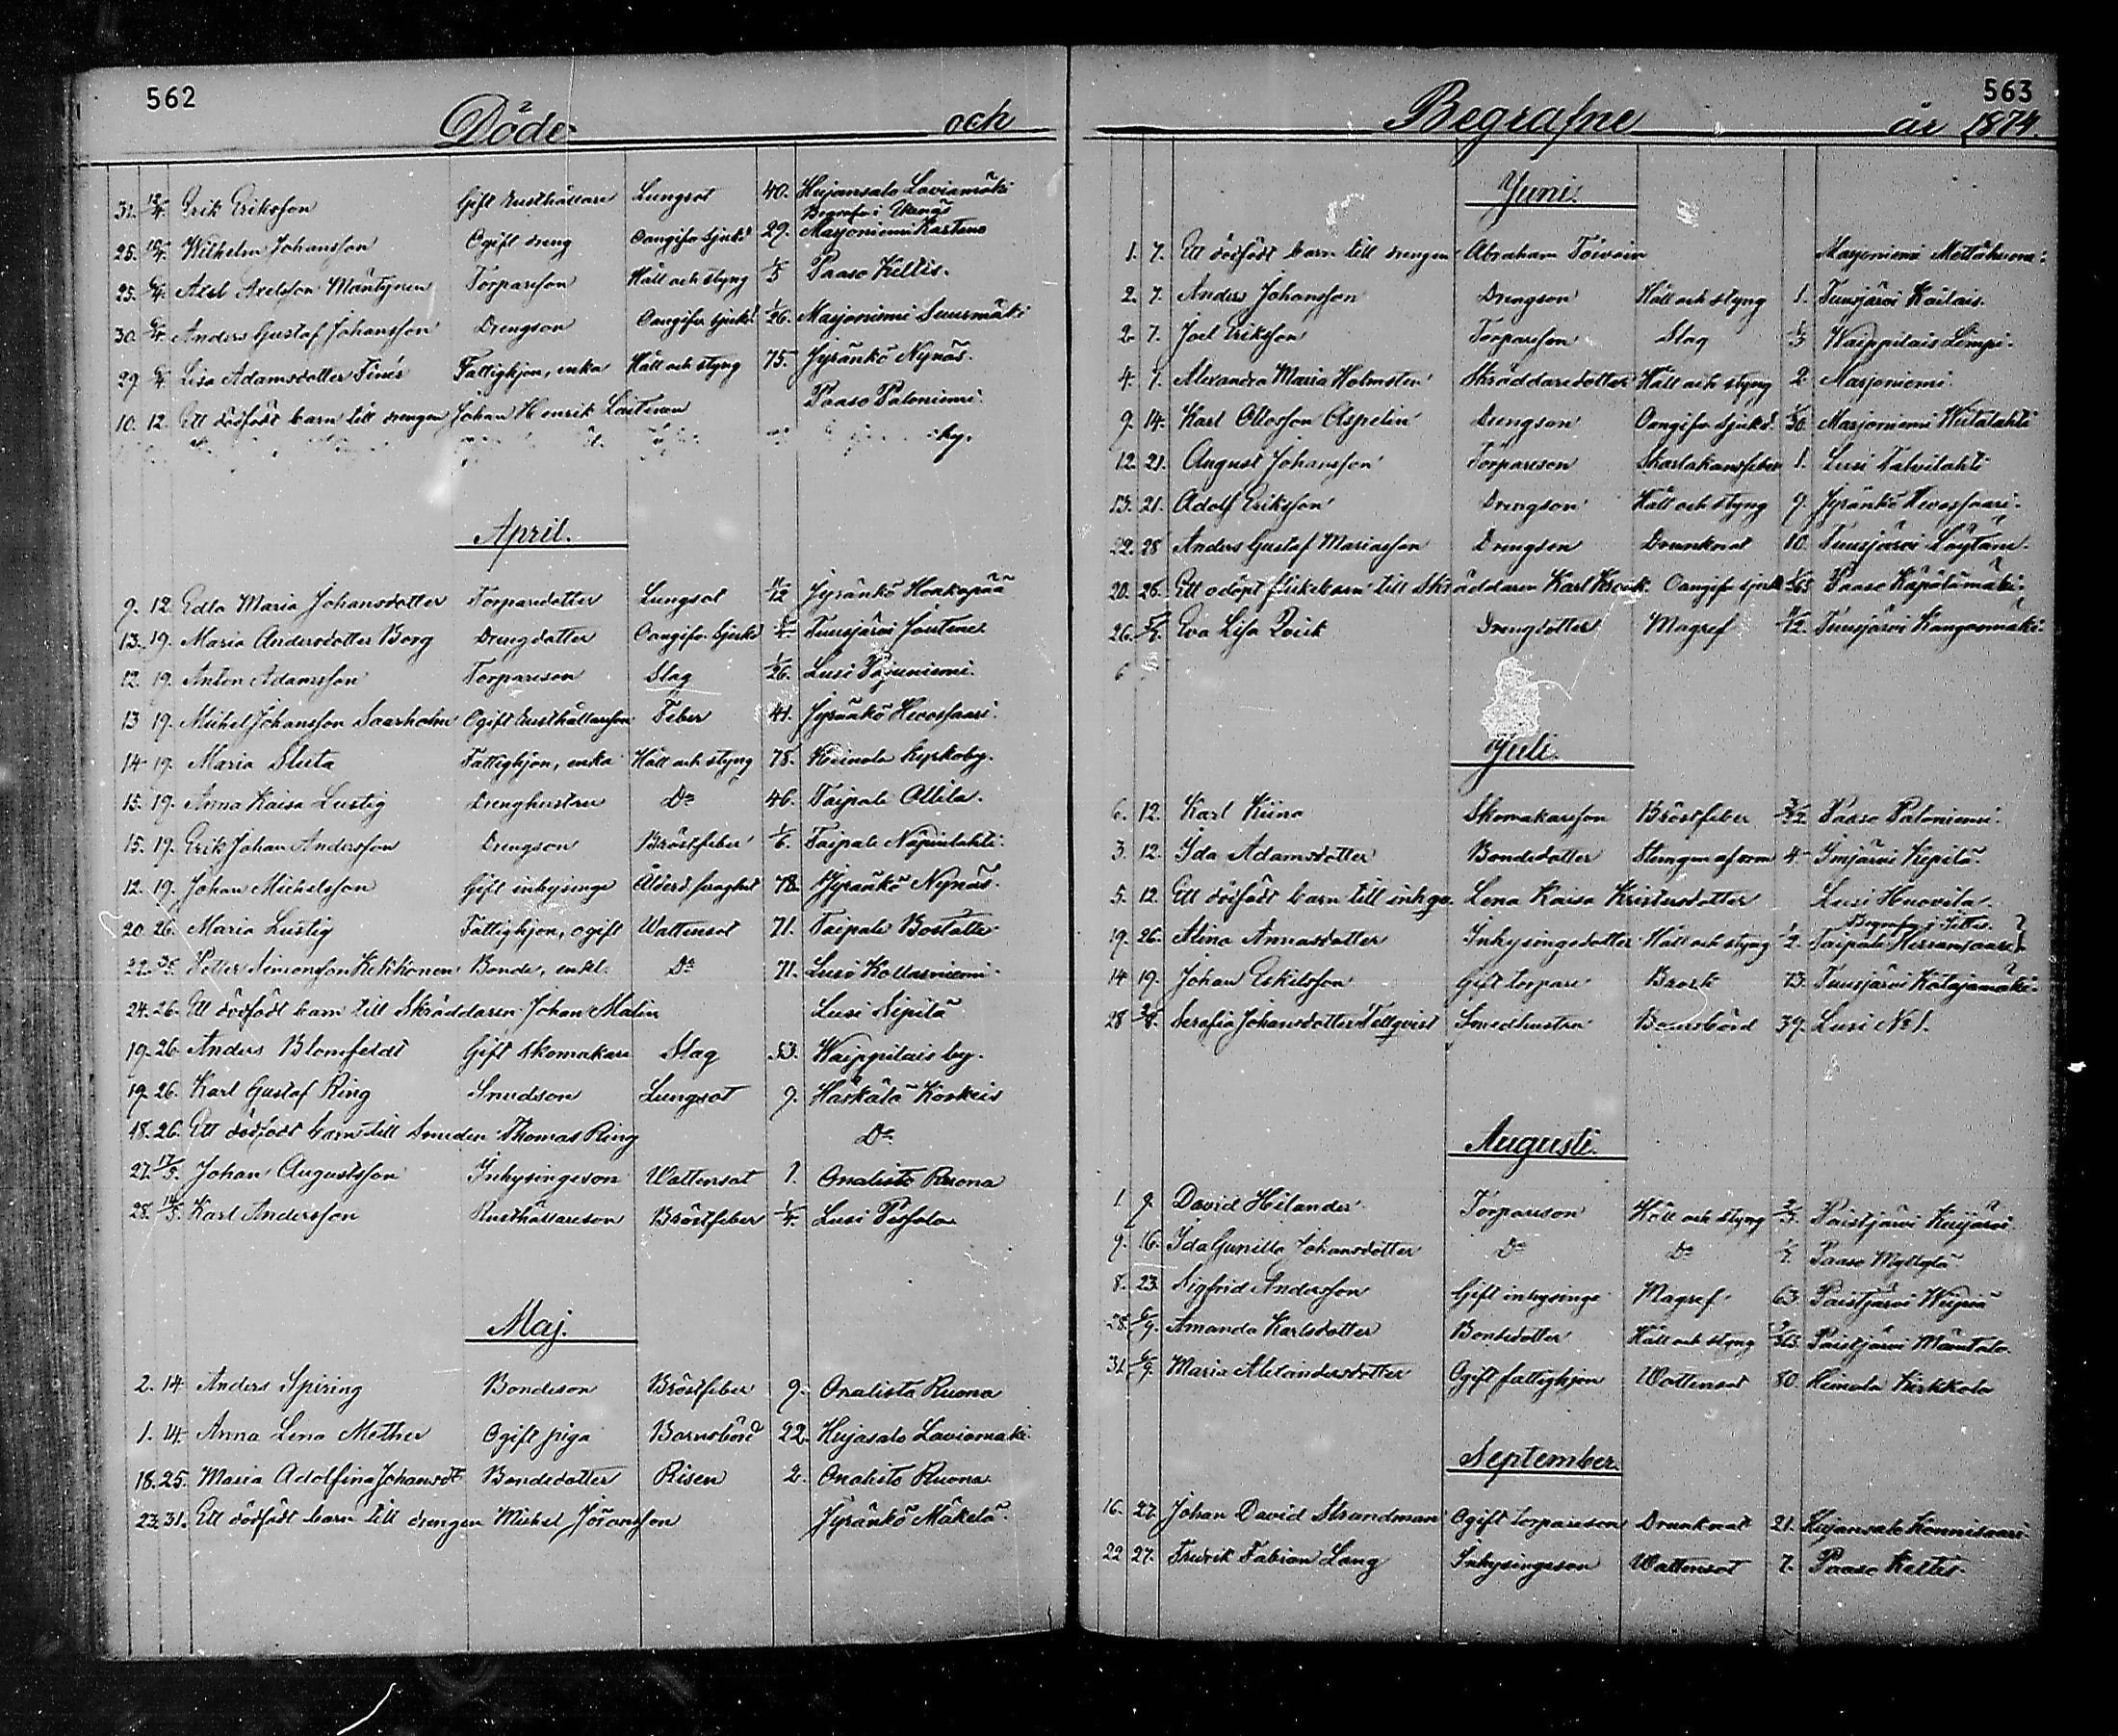 562
Döde och
31. 12/4. Erik Eriksson Gift Rusthållare Lungsot 40. Hujansalo Laviamäki
Begrafn i
25. 12/4. Wilhelm Johansson Ogift dreng Oangifn sjukd 29. Marjoniemi
25. Axel Axelsson Mäntynen Torpareson Håll och styng 1/5 Paaso Keltis.
30. Anders Gustaf Johansson Drengson Oangifn sjukd. 1/26. Marjoniemi Suurmäki
29. Lisa Adamsdotter Finér Fattighjon, enka Håll och styng 75. Jyränkö Nynäs.
10. 12. Ett dödfödt barn till drengen Johan Henrik Laitinen Paaso Paloniemi.
April.
9. 12. Edla Maria Johansdotter Torparedotter Lungsot 11/12 Jyränkö Honkapää
13. 19. Maria Andersdotter Borg Drengdotter Oangifn sjukd Tuusjärvi
12. 19. Anton Adamsson Torpareson Slag 1/26. Lusi Pajuniemi.
13 19. Mikel Johansson Saarholm Ogift Rusthållareson Feber 41. Jyränkö Hevossaari.
14 19. Maria Sluta Fattighjon, enka Håll och styng 78. Heinola Kyrkoby.
15. 19. Anna Kaisa Lustig Drenghustru Do 46. Taipale Ollila.
15. 19. Erik Johan Andersson Drengson Bröstfeber 1/6. Taipale
12. 19. Johan Michelsson Gift inhysinge Ålderd. svaghet 78. Jyränkö Nynäs.
20. 26. Maria Lustig Fattighjon, ogift Wattensot 71. Taipale Boställe
22. 26. Petter Simonsson Kekkonen Bonde, enkl. Do 71. Lusi
24. 26. Ett dödfödt barn till Skräddaren Johan Malin Lusi Sipilä
19. 26. Anders Blomfeldt Gift Skomakare Slag 53. Waippilais by.
19. 26. Karl Gustaf Ring Smedson Lungsot 9. Härkälä Korkeis
18. 26. Ett dödfödt barn till Smeden Thomas Ring Do
27. 17/5. Johan Augustsson Inhysingeson Wattensot 1. Onalisto Ruona
28. 14/5. Karl Andersson Rusthållareson Bröstfeber 1/4. Lusi
Maj.
2. 14 Anders Spiring Bondeson Bröstfeber 9. Onalisto Ruona
1. 14. Anna Lena Mether Ogift piga Barnsbörd 22. Hujasalo Laviamäki.
18. 25. Maria Adolfina Johansdt Bondedotter Risen 2. Onalisto Ruona.
23. 31. Ett dödfödt barn till drengen Mikel Jöransson Jyränkö Mäkelä.
563
Begrafne år 1874.
Juni.
1. 7. Ett dödfödt barn till drengen Abraham Toivain Marjoniemi
2. 7. Anders Johansson Drengson Håll och styng 1. Tuusjärvi Kailais.
2. 7. Joel Eriksson Torpareson Slag 1/3 Waippilais Lömpi.
4. 7. Alexandra Maria Holmsten Skräddaredotter Håll och styng 2. Marjoniemi.
9. 14. Karl Ottosson Aspelin Drengson Oangifn sjukd. 1/30. Marjoniemi Wiitalahti
12. 21. August Johansson Torpareson Skarlakansfeber 1. Lusi Talvilahti
13. 21. Adolf Eriksson Drengson Håll och styng 9. Jyränkö Hevossaari.
22. 28 Anders Gustaf Mariasson Drengson Drunknat 10. Tuusjärvi Löytänä.
20. 26. Ett odöpt flickebarn till Skräddaren Karl Oangifn sjukd Paaso Käpälämäki.
26. Eva Lisa Qvick Drengdotter Magref Tuusjärvi Kangasmäki.
Juli.
6. 12. Karl Kiina Skomakarson Bröstfeber Paaso Paloniemi.
3. 12. Ida Adamsdotter Bondedotter Stungen af orm 4. Imjärvi Kepilä.
5. 12. Ett dödfödt barn till inhys. Lena Kaisa Kristersdotter Lusi Huovila.
Begrafn i Sittis.
19. 26. Alina Annasdotter Inhysingedotter Håll och styng 1/2. Taipale Hirvensaari
14 19. Johan Eskilsson Gift torpare Bråck 73. Tuusjärvi Katajamäki.
28 2/8. Serafia Johansdotter Tellqvist Smedhustru Barnsbörd 39. Lusi No 1.
Augusti.
1 9. David Hilander Torpareson Håll och styng Paistjärvi
9. 16. Ida Gunilla Johansdotter Do Do Paaso Myllylä
8. 23. Sigfrid Andersson Gift inhysinge Magref 63. Paistjärvi
28. 6/9. Amanda Karlsdotter Bondedotter Håll och styng Paistjärvi Mäntälä.
31. 6/9. Maria Alexandersdotter Ogift fattighjon Wattensot 80. Heinola Kirkkola
September.
16. 27. Johan David Strandman Ogift torpareson Drunknat 21. Hujansalo Konnisaari
22 27. Fredrik Fabian Lang Inhysingeson Wattensot 7. Paaso Keltis.